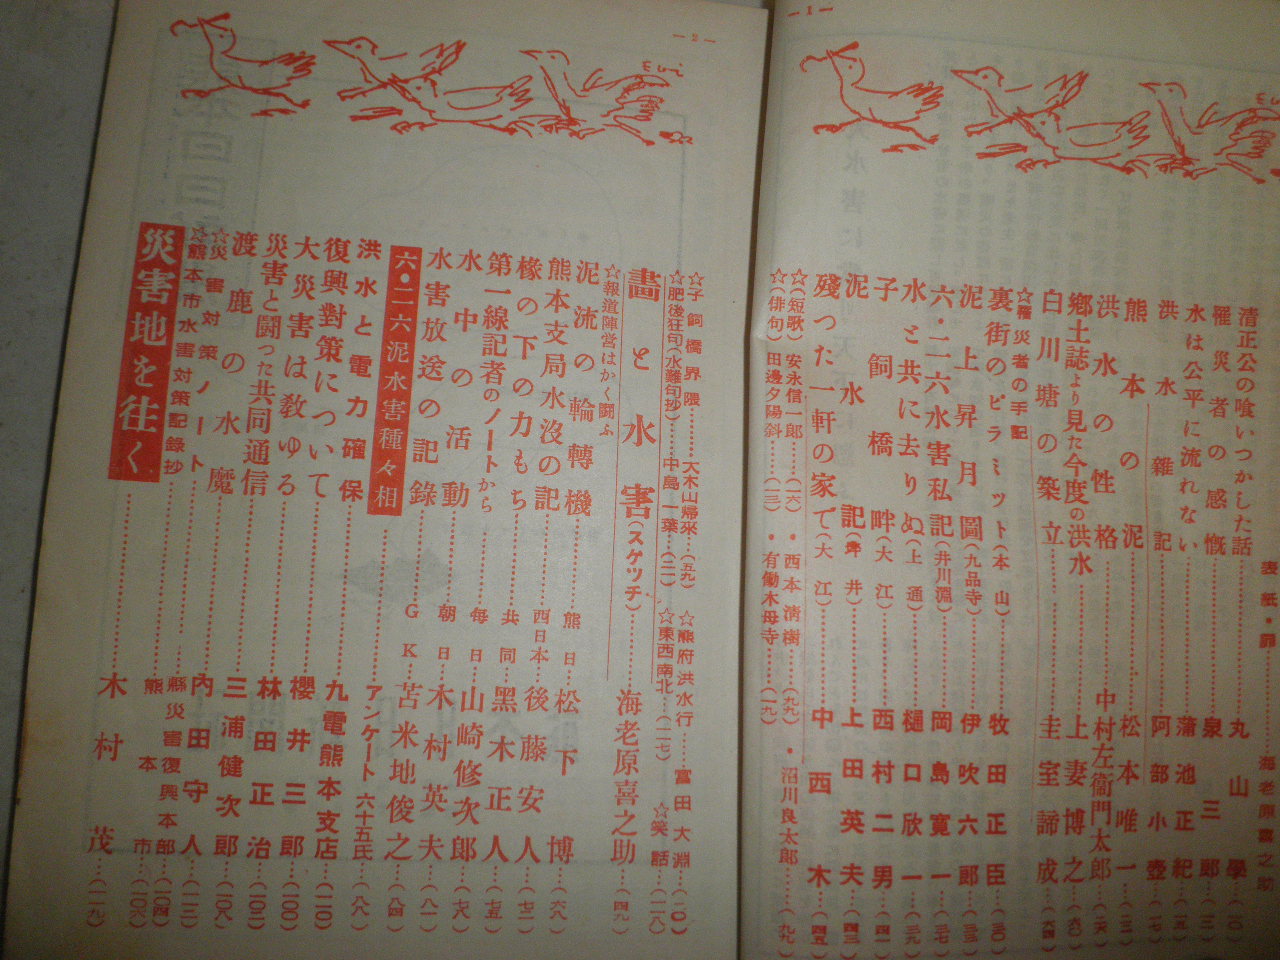 —1—
Eui
表紙・扉………海老原喜之助
清正公の喰いつかした話………丸山學…(一〇)
罹災者の感慨………泉三郎…(一二)
水は公平に流れない………蒲池正紀…(一五)
洪水雜記………阿部小壺…(一七)
熊本の泥………松本唯一…(二三)
洪水の性格………中村左衞門太郎…(二六)
鄕土誌より見た今度の洪水………上妻博之…(六〇)
白川塘の築立………圭室諦成…(六四)
☆罹災者の手記
裏街のピラミット(本山)………牧田正臣…(三〇)
泥上昇月圖(九品寺)………伊吹六郎…(三三)
六・二六水害私記(井川淵)………岡島寛一…(三七)
水と共に去りぬ(上通)………樋口欣一…(三九)
子飼橋畔(大江)………西村二男…(四一)
泥水記(坪井)………上田英夫…(四三)
殘つた一軒の家で(大江)………中西木…(四五)
☆(短歌)安永信一郎………(一六)・西本淸樹………(九九)・沼川良太郎………(九九)
☆(俳句)田邊夕陽斜………(一三)・有働木母寺………(一九)
—2—
Eui
☆子飼橋界隈………大木山歸來…(五九)☆熊府洪水行………富田大淵…(二〇)
☆肥後狂句(水難句抄)………中島一葉…(二一)☆東西南北…(一一七)☆笑話…(一一八)
畵と水害(スケッチ)………海老原喜之助…(四九)
☆報道陣営はかく闘ふ
泥流の輪轉機………熊日………松下博…(六八)
熊本支局水沒の記………西日本…後藤安人…(七二)
椽の下の力もち………共同…黑木正人…(七五)
第一線記者のノートから………毎日…山崎修次郎…(七八)
水中の活動………朝日…木村英夫…(八一)
水害放送の記錄………GK…苫米地俊之…(八四)
六・二六泥水害種々相………アンケート 六十五氏…(八八)
洪水と電力確保………九電熊本支店…(一一〇)
復興對策について………櫻井三郎…(一〇〇)
大災害は敎ゆる………林田正治…(一〇二)
災害と闘った共同通信………三浦健次郎…(一〇八)
渡鹿の水魔………内田守人…(一一二)
☆災害対策ノート………縣災害復興本部…(一〇四)
☆熊本市水害対策記録抄………熊本市…(一〇六)
災害地を往く………木村茂…(一一九)